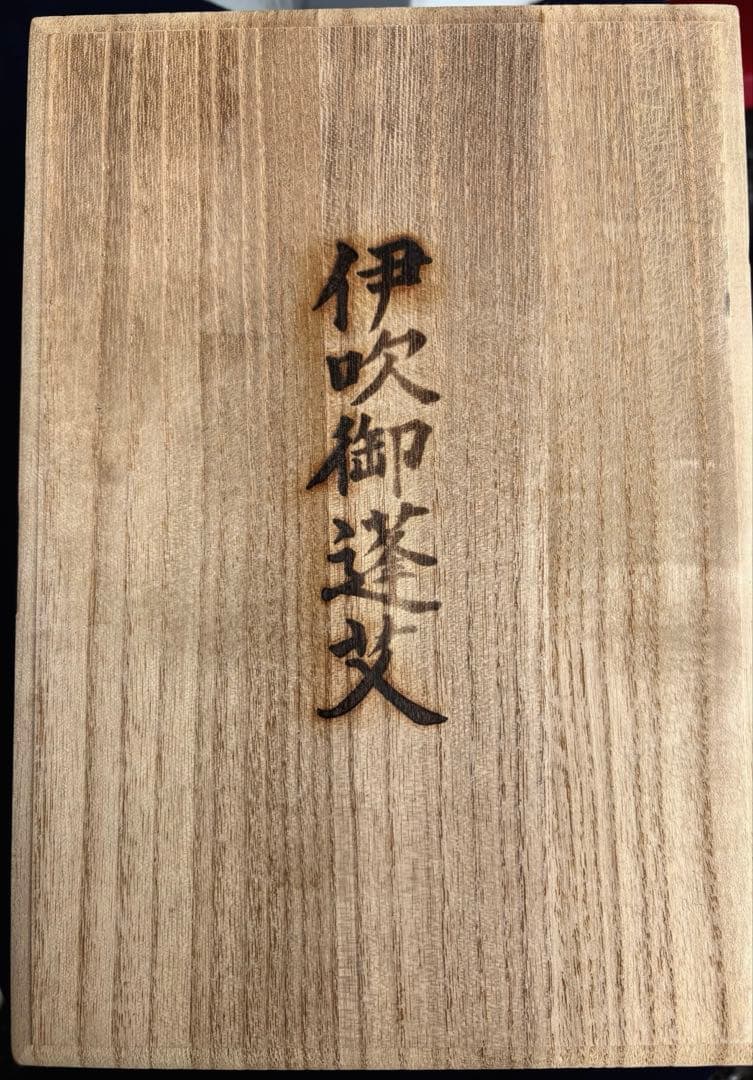 伊吹御蓬艾